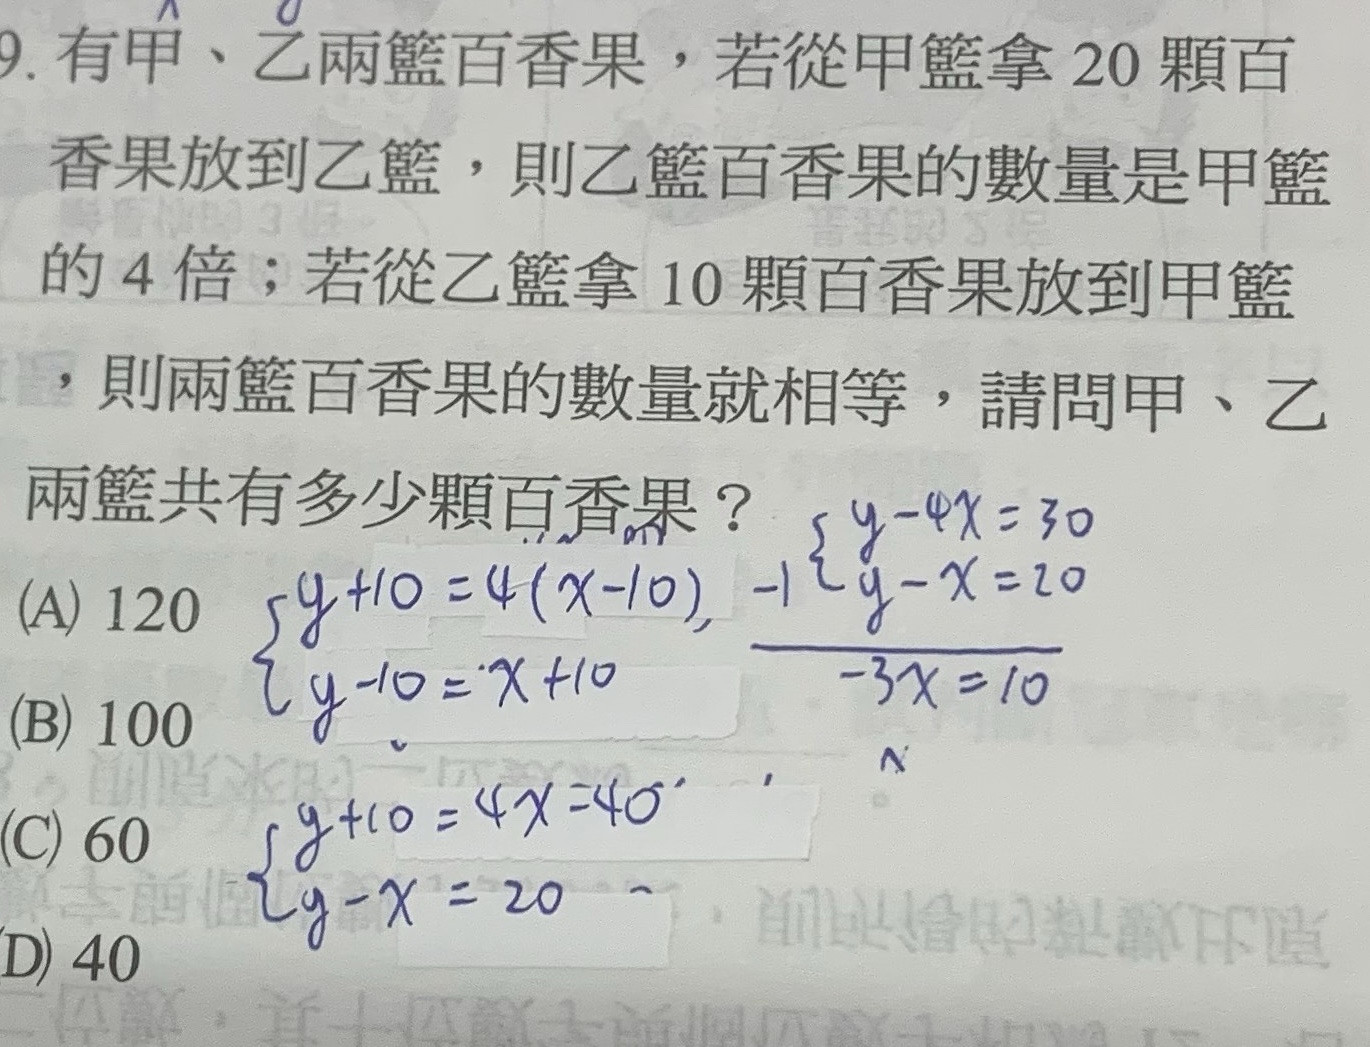 x y
9. 有甲、乙兩籃百香果，若從甲籃拿 20 顆百
香果放到乙籃，則乙籃百香果的數量是甲籃
的 4 倍；若從乙籃拿 10 顆百香果放到甲籃
，則兩籃百香果的數量就相等，請問甲、乙
兩籃共有多少顆百香果？
(A) 120
(B) 100
(C) 60
(D) 40
y+10=4(x-10)
y-10=x+10
y+10=4x=40
y-x=20
y-4x=30
-1 y-x=20
-3x=10